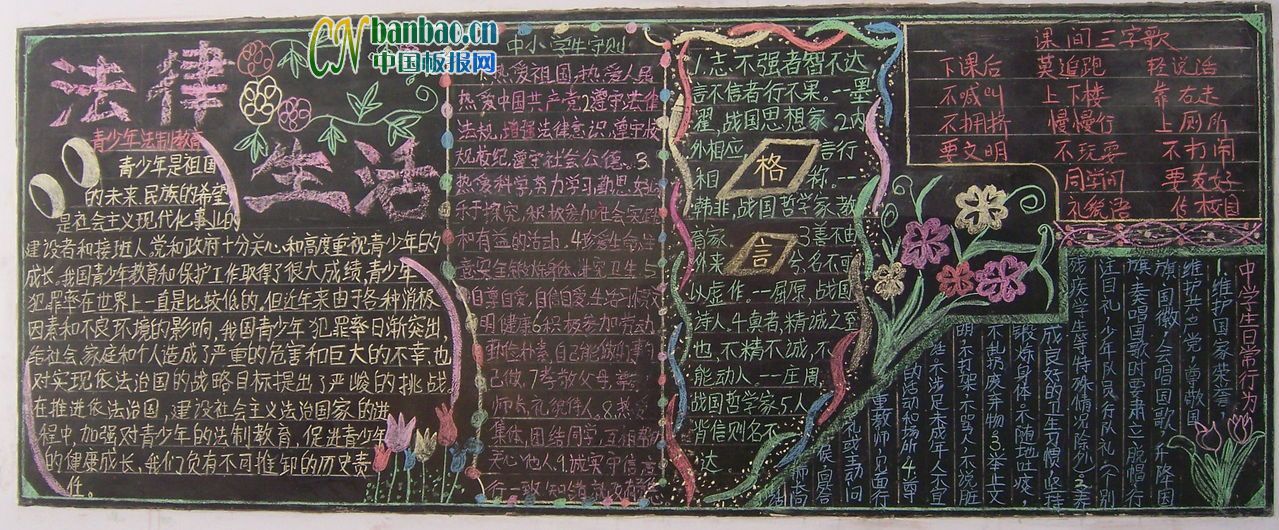 CNbanbao.cn
中国板报网
法律
生活
青少年法制教育
青少年是祖国
的未来,民族的希望
是社会主义现代化事业的
建设者和接班人,党和政府十分关心和高度重视青少年的
成长。我国青少年教育和保护工作取得了很大成绩,青少年
犯罪率在世界上一直是比较低的。但近年来由于各种消极
因素和不良环境的影响,我国青少年犯罪率日渐突出,
给社会、家庭和个人造成了严重的危害和巨大的不幸,也
对实现依法治国的战略目标提出了严峻的挑战,
在推进依法治国,建设社会主义法治国家的进
程中,加强对青少年的法制教育,促进青少年
的健康成长,我们负有不可推卸的历史责
任。
中小学生守则
热爱祖国,热爱人民
热爱中国共产党2遵守法律
法规,增强法律意识,遵守校
规校纪,遵守社会公德。3
热爱科学,努力学习,勤思
乐于探究,积极参加社会实践
和有益的活动。4珍爱生命,注
意安全,锻炼身体,讲究卫生。5
自尊自爱,自信自强,生活习惯文
明健康6积极参加劳动
勤俭朴素,自己能做的事
己做。7孝敬父母,尊敬
师长,礼貌待人。8热爱
集体,团结同学,互相帮助
关心他人。9诚实守信,言
行一致,知错就改
格
言
1.志不强者智不达
言不信者行不果。--墨
翟,战国思想家。2内
外相应 言行
相 称。--
韩非,战国哲学家、教
育家。 3善不由
外来 兮,名不可
以虚作。--屈原,战国
诗人。4真者,精诚之至
也,不精不诚,不
能动人。--庄周
战国哲学家5.人
背信则名不
达
课间三字歌
下课后 莫追跑 轻说话
不喊叫 上下楼 靠右走
不拥挤 慢慢行 上厕所
要文明 不玩耍 不打闹
同学间 要友好
礼貌语 传校园
中学生日常行为
1.维护国家荣誉,
维护共产党,尊敬国
旗、国徽,会唱国歌,升降国
旗、奏唱国歌时要肃立、脱帽、行
注目礼,少年队员行队礼(个别
残疾学生等特殊情况除外)2养
成良好的卫生习惯,坚持
锻炼身体,不随地吐痰,
不乱扔废弃物。3举止文
明,不打架,不骂人,不说脏
话,不涉足未成年人不宜
的活动和场所。4尊
重教师,见面行
礼或主动问
候,回答